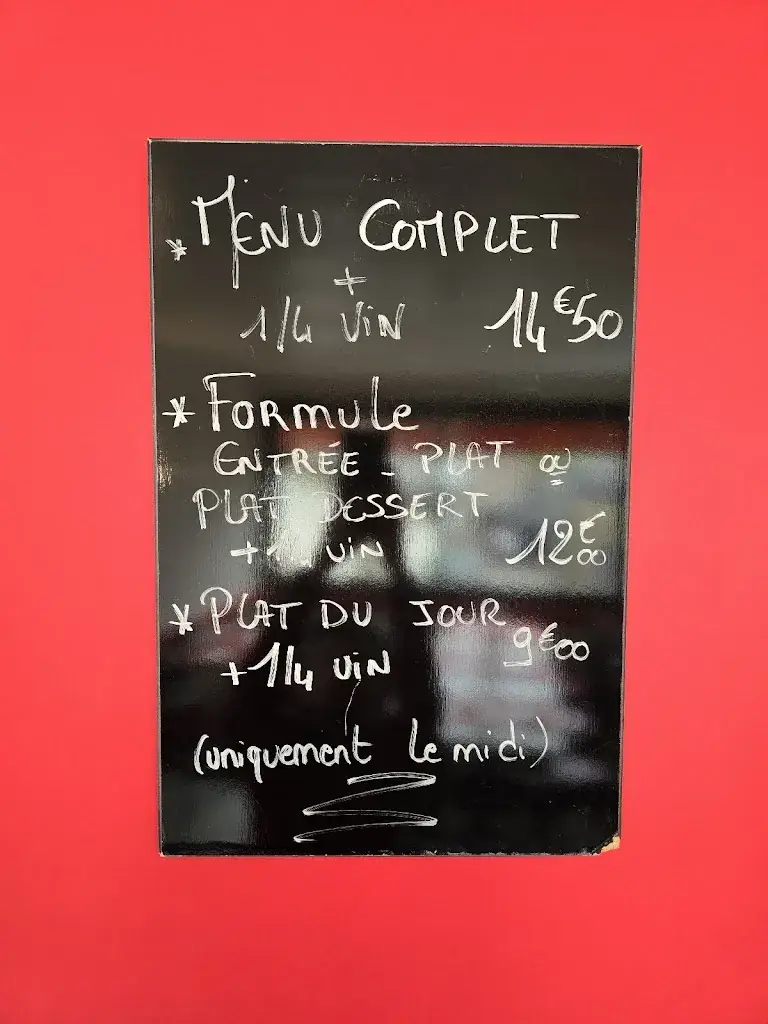 * MENU COMPLET
+
1/4 ViN 14€50
* FORMULE
ENTRÉE - PLAT ou
PLAT DESSERT
+ 1/4 ViN 12€00
* PLAT DU JOUR
+ 1/4 ViN 9€00
(uniquement le midi)